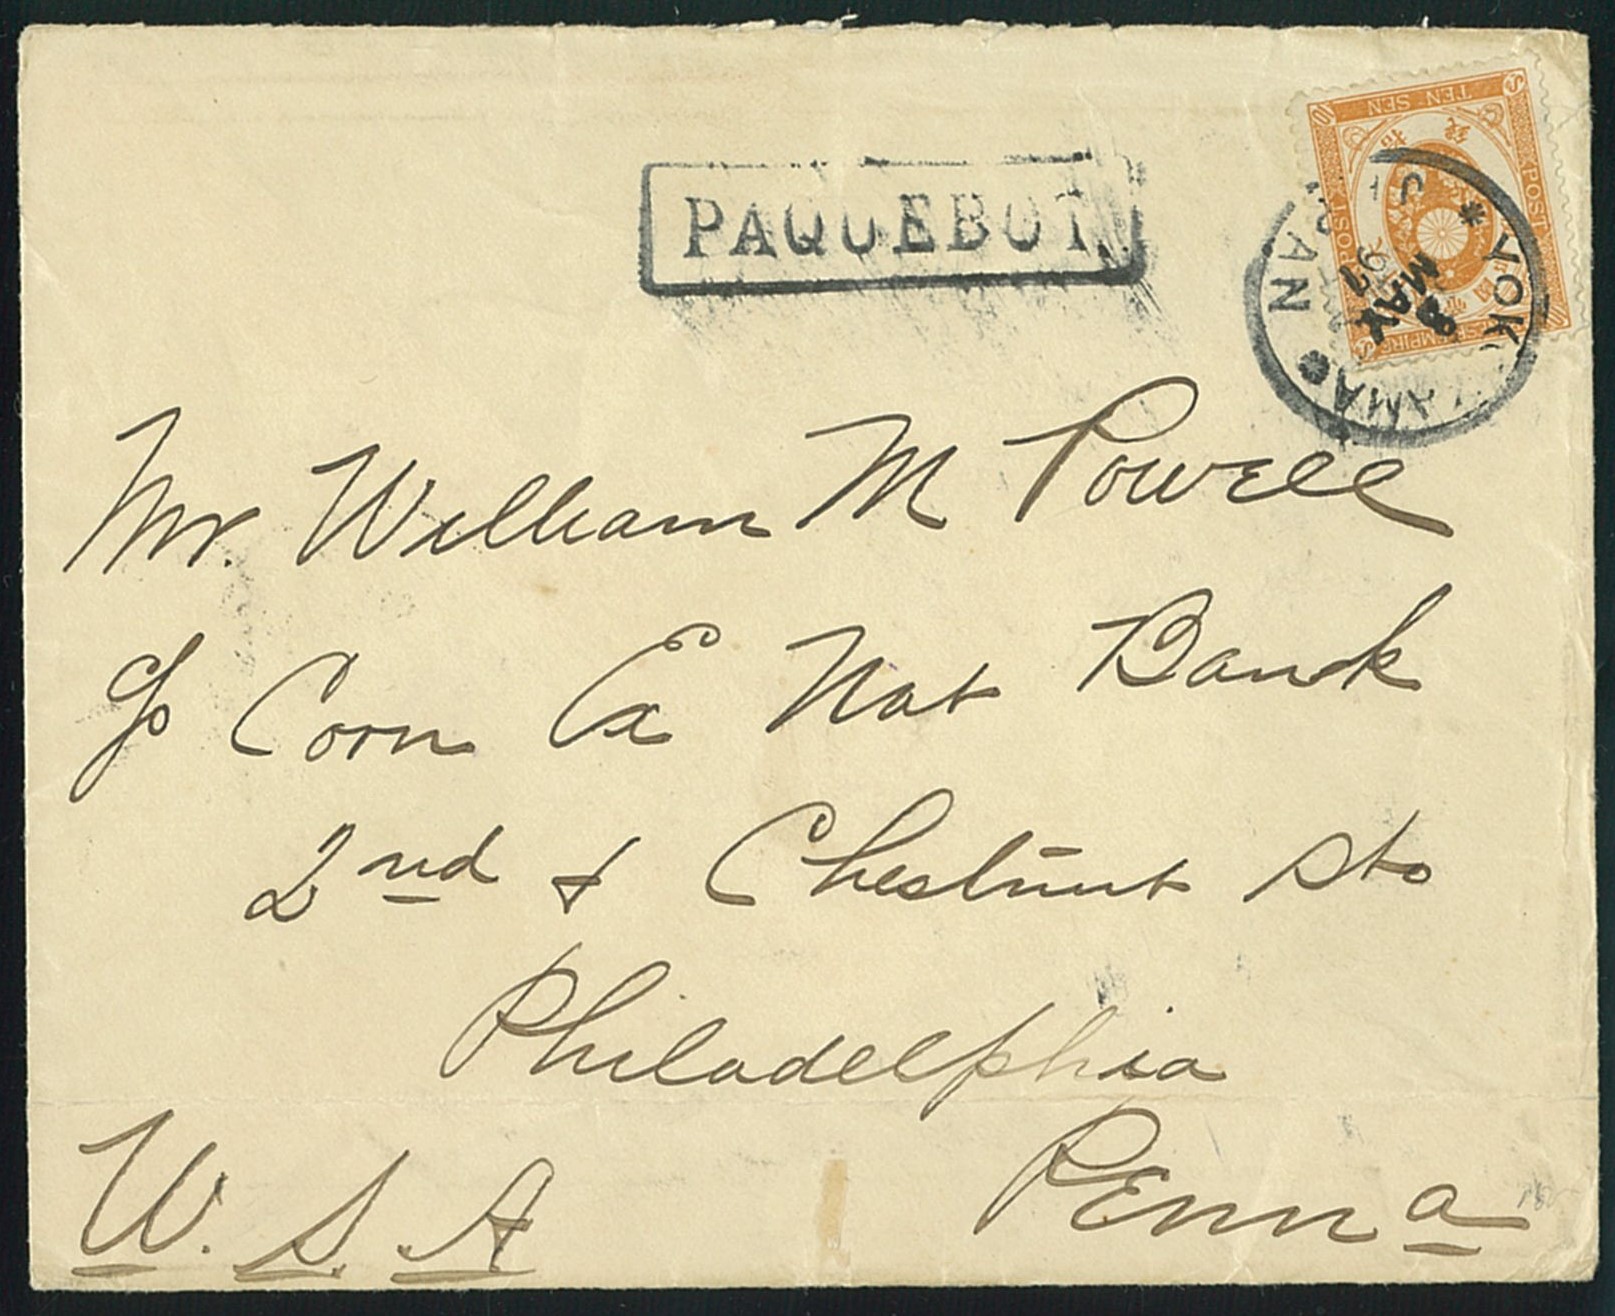 PAQUEBOT
TEN·SEN
POST
POST
YOK AMA
JAPAN
8
MAY
97
Mr. William M Powell
c/o Corn Ex Nat Bank
2nd & Chestnut Sts
Philadelphia
Penna
U.S.A